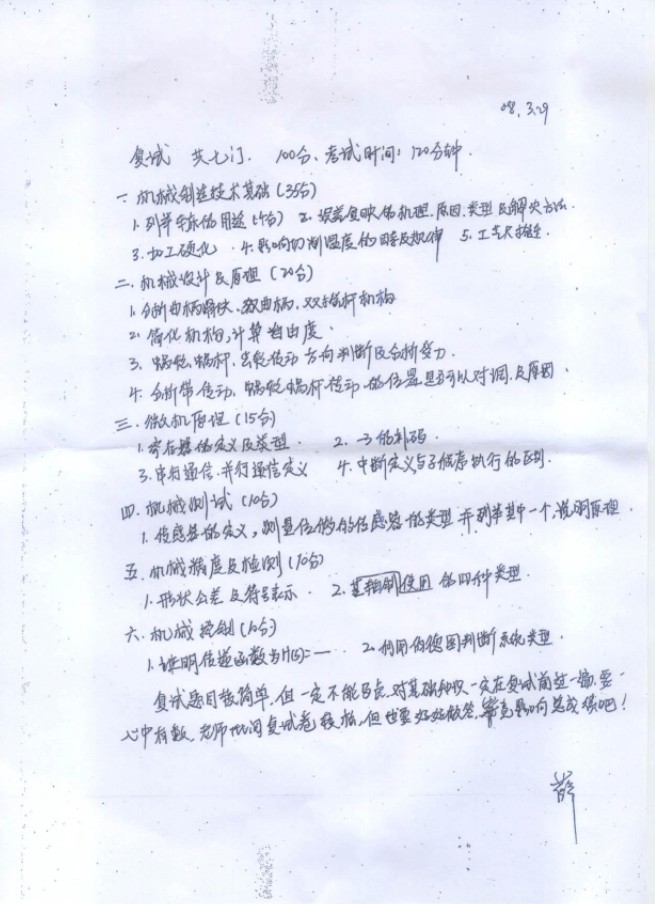 08.3.29
复试 共七门. 100分、考试时间:120分钟.
一、机械制造技术基础(35分)
1.列举车床的用途(4分) 2.误差复映的机理.原因.类型及解决方法.
3.加工硬化 4.影响切削温度的因素及规律 5.工艺尺寸链.
二、机械设计及原理(20分)
1.分析曲柄摇杆、双曲柄、双摇杆机构
2.简化机构,计算自由度.
3.蜗轮、蜗杆、齿轮传动方向判断及分析受力.
4.分析带传动、蜗轮蜗杆传动的位置是否可以对调.及原因.
三.微机原理(15分)
1.寄存器的定义及类型. 2. 的补码.
3.串行通信.并行通信定义 4.中断定义,与子程序执行的区别.
四.机械测试(10分)
1.传感器的定义,测量位移的传感器的类型.并列举其中一个,说明原理.
五.机械精度及检测(10分)
1.形状公差及符号表示. 2. 使用的四种类型.
六.机械控制(10分)
1.证明传递函数为H(s)=— 2.利用伯德图判断系统类型.
复试题目较简单.但一定不能 .对基础知识一定在复试前过一遍.要
心中有数.老师 复试卷较松,但也要好好做答,毕竟影响总成绩吧!